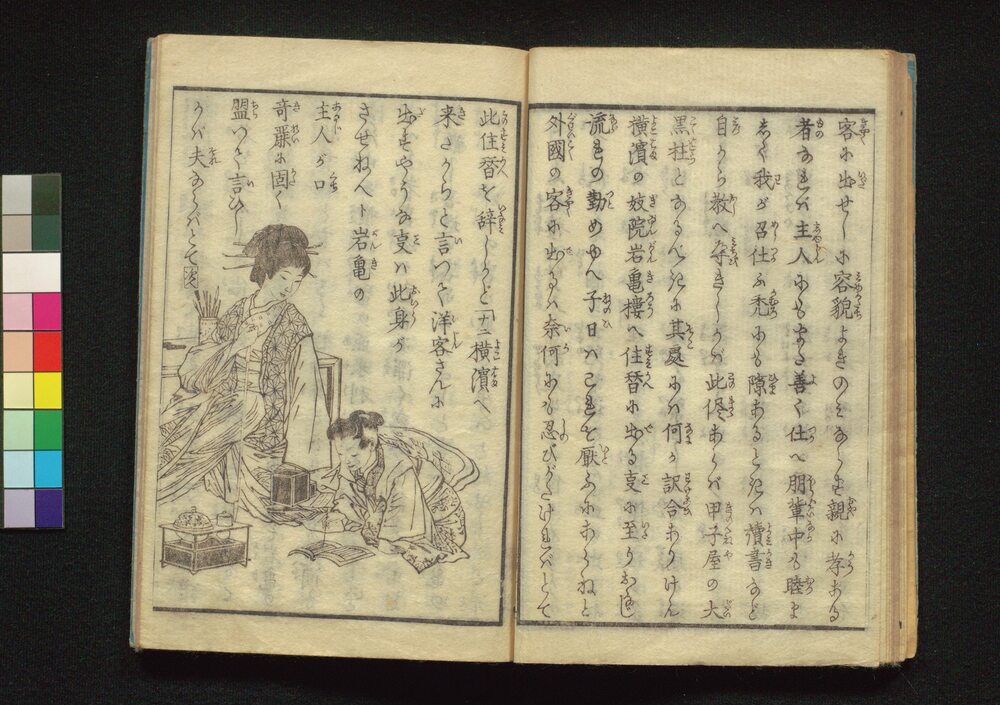 客に出せしに容貌よきのミならず親に孝ある
者なれバ主人にもまた善く仕へ朋輩中も睦ま
しく我が召仕ふ禿にも隙あるときハ讀書など
自から教へ導きしかバ此侭あらバ甲子屋の大
黒柱となるべきに其處にハ何か訳合ありけん
横濱の妓院岩亀樓へ住替に出る事に至りぬ
流れの勤めゆへ子日ハこれを厭ふにあらねど
外國の客に出るハ奈何にも忍びがたけれバとて
此住替を辞しかど「十二横濱へ
来たからと言つて洋客さんに
出すやうな事ハ此身が
させねへト岩亀の
主人が口
奇麗に固く
盟つて言ひし
かバ夫ならバとて 次へ